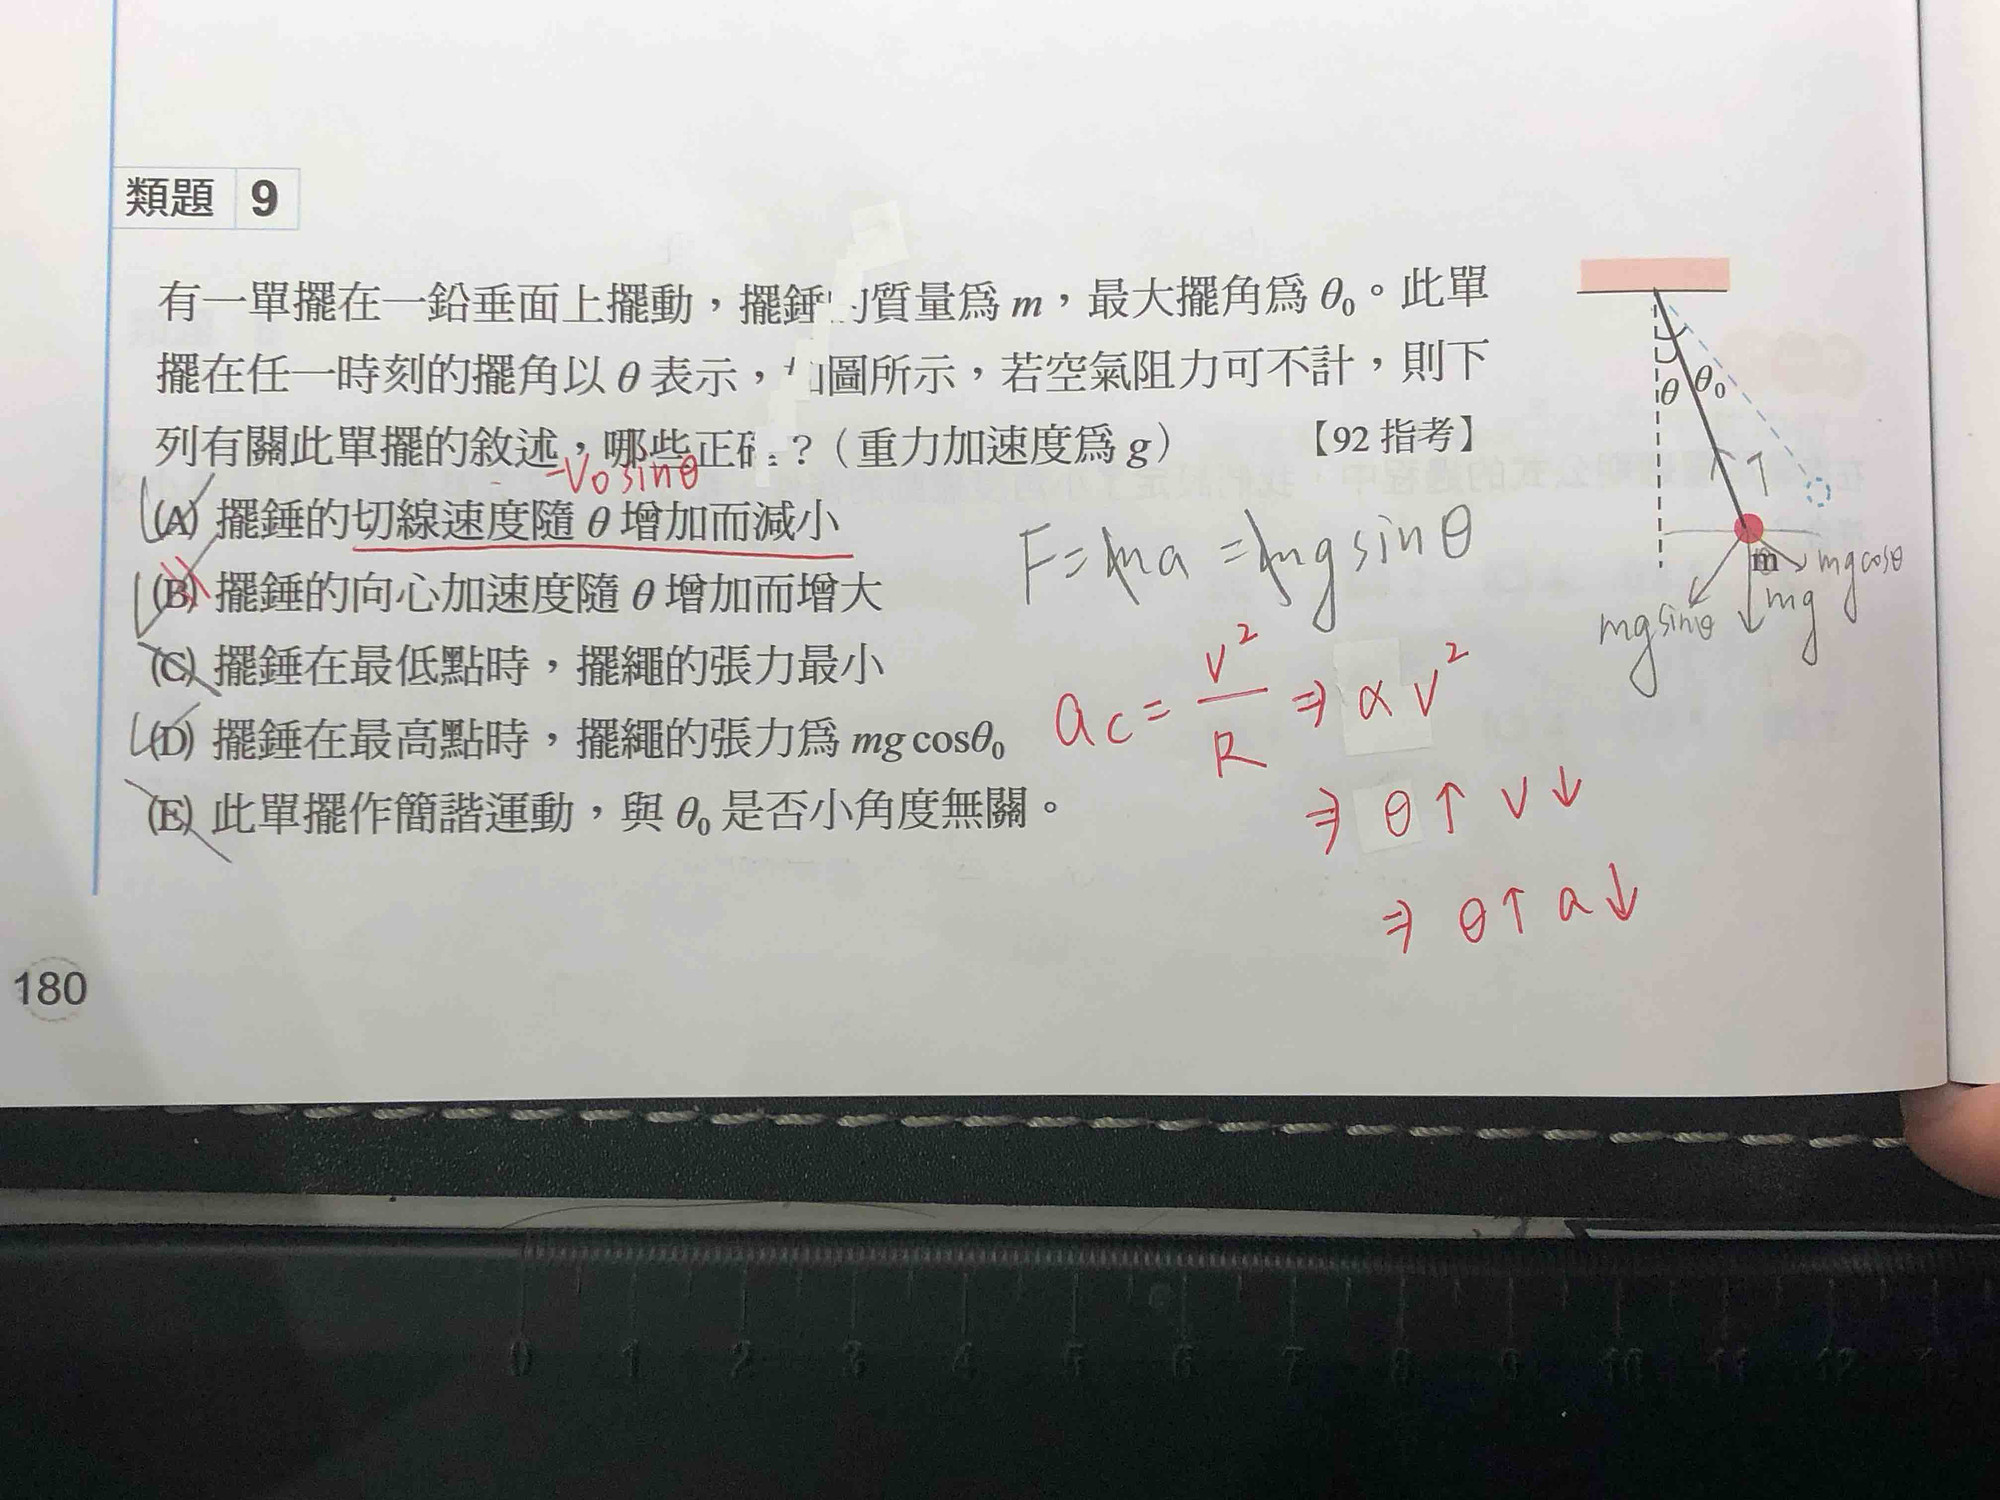 類題 9
有一單擺在一鉛垂面上擺動，擺錘 質量為 m，最大擺角為 θ₀。此單
擺在任一時刻的擺角以 θ 表示，圖所示，若空氣阻力可不計，則下
列有關此單擺的敘述，哪些正 ？（重力加速度為 g） 【92 指考】
-V₀ sinθ
(A) 擺錘的切線速度隨 θ 增加而減小
(B) 擺錘的向心加速度隨 θ 增加而增大
(C) 擺錘在最低點時，擺繩的張力最小
(D) 擺錘在最高點時，擺繩的張力為 mg cosθ₀
(E) 此單擺作簡諧運動，與 θ₀ 是否小角度無關。
F = ma = mg sinθ
a c = v²/R ⇒ ∝ v²
⇒ θ↑ v↓
⇒ θ↑ a↓
θ θ₀
m
mg cosθ
mg sinθ
mg
180
0 1 2 3 4 5 6 7 8 9 10 11 12